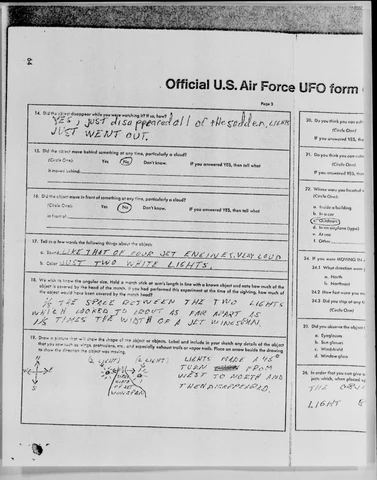 Official U.S. Air Force UFO form
Page 3
14. Did the object disappear while you were watching it? If so, how?
YES, JUST disappeared all of the sodden, LIGHTS
JUST WENT OUT.
15. Did the object move behind something at any time, particularly a cloud?
(Circle One): Yes No Don't know. If you answered YES, then tell what
it moved behind:
16. Did the object move in front of something at any time, particularly a cloud?
(Circle One): Yes No Don't know. If you answered YES, then tell what
in front of:
17. Tell in a few words the following things about the object:
a. Sound LIKE THAT OF FOUR JET ENGINES, VERY LOUD
b. Color JUST TWO WHITE LIGHTS.
18. We wish to know the angular size. Hold a match stick at arm's length in line with a known object and note how much of the
object is covered by the head of the match. If you had performed this experiment at the time of the sighting, how much of
the object would have been covered by the match head?
THE SPACE BETWEEN THE TWO LIGHTS
WHICH LOOKED TO ABOUT AS FAR APART AS
1½ TIMES THE WIDTH OF A JET WINGSPAN.
19. Draw a picture that will show the shape of the object or objects. Label and include in your sketch any details of the object
that you saw such as wings, protrusions, etc., and especially exhaust trails or vapor trails. Place an arrow beside the drawing
to show the direction the object was moving.
N
W
E
S
(LIGHT) (LIGHT)
WINGSPAN
LIGHTS MADE A 45°
TURN FROM
WEST TO NORTH AND
THEN DISAPPEARED.
20. Do you think you can
(Circle One)
If you answered YES,
21. Do you think you can
(Circle One)
If you answered YES,
22. Where were you located
(Circle One):
a. Inside a building
b. In a car
c. Outdoors
d. In an airplane (type)
e. At sea
f. Other
24. If you were MOVING IN
24.1 What direction were
a. North
b. Northeast
24.2 How fast were you
24.3 Did you stop at any
(Circle One)
25. Did you observe the object
a. Eyeglasses
b. Sun glasses
c. Windshield
d. Window glass
26. In order that you can give
which, when placed
THE
LIGHT